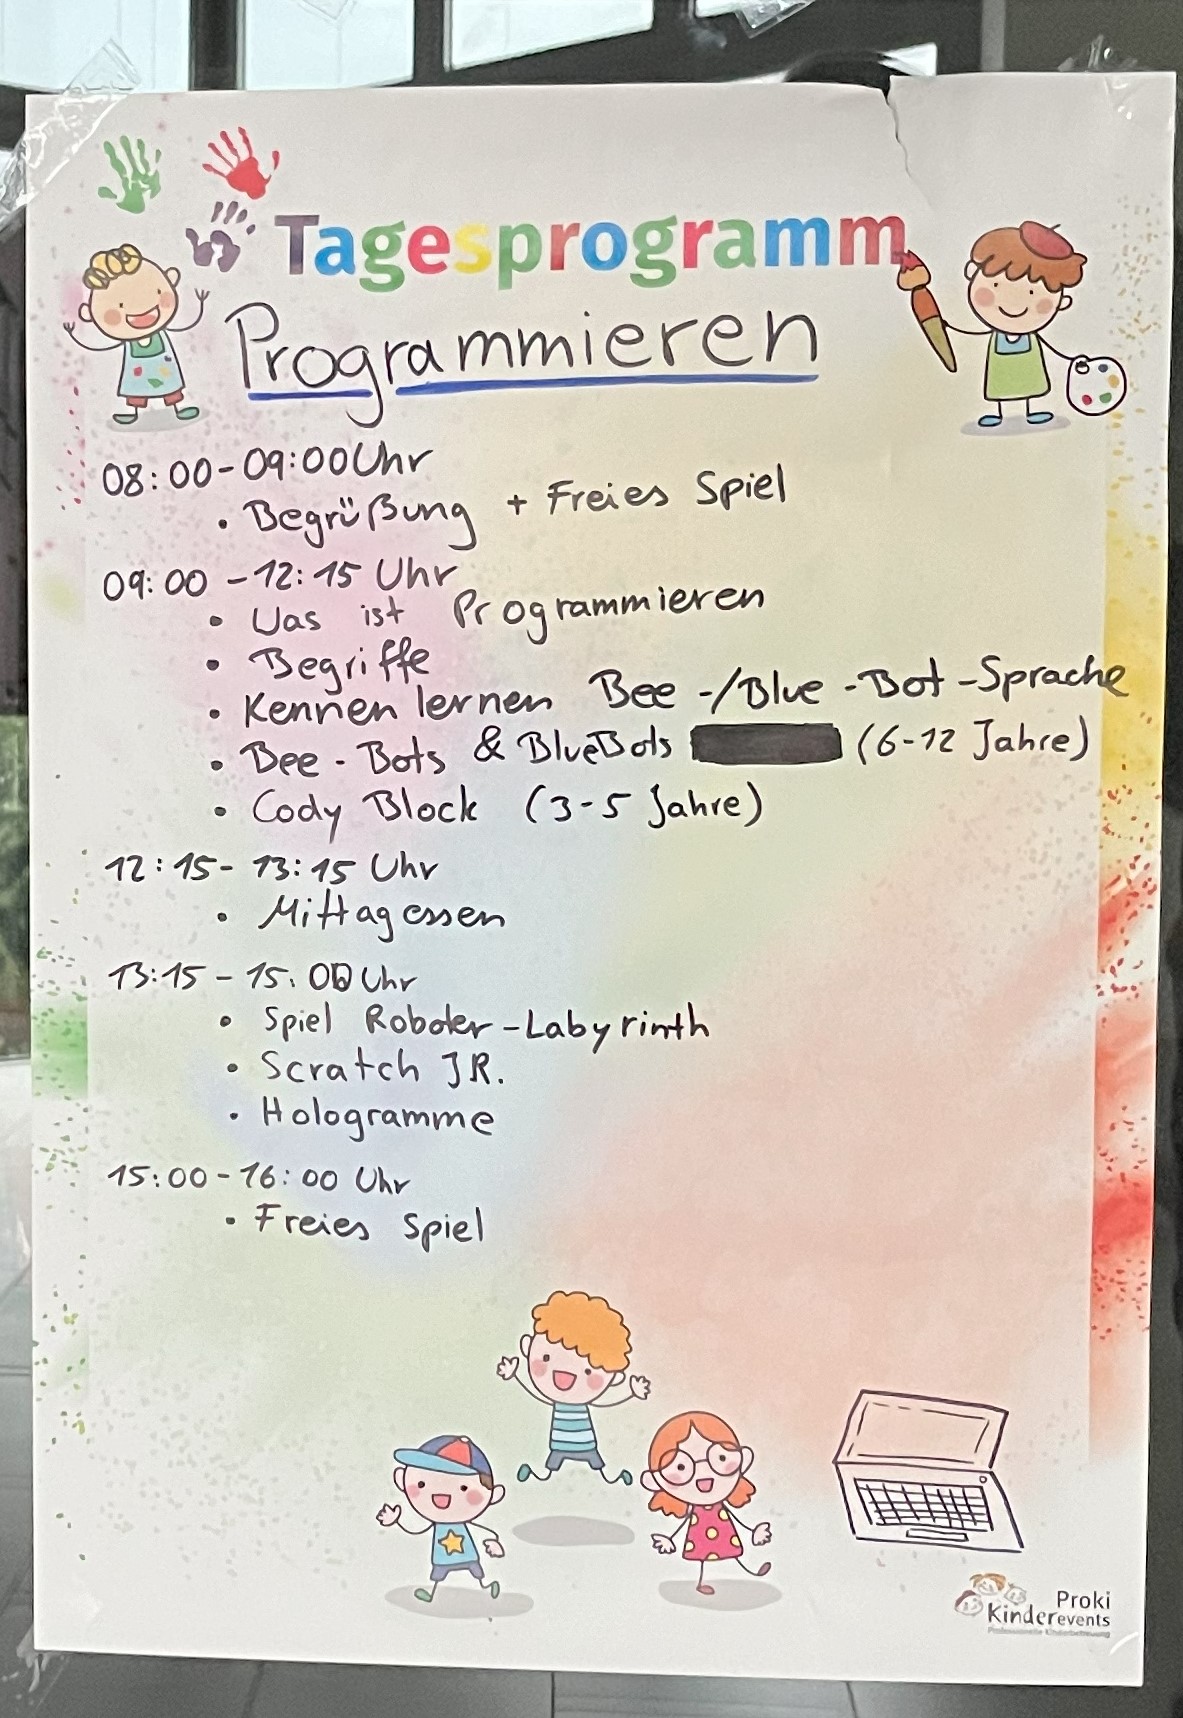 Tagesprogramm
Programmieren
08:00-09:00 Uhr
• Begrüßung + Freies Spiel
09:00 - 12:15 Uhr
• Was ist Programmieren
• Begriffe
• Kennen lernen Bee -/Blue -Bot -Sprache
• Bee - Bots & BlueBots (6-12 Jahre)
• Cody Block (3-5 Jahre)
12:15 - 13:15 Uhr
• Mittagessen
13:15 - 15:00 Uhr
• Spiel Roboter -Labyrinth
• Scratch JR.
• Hologramme
15:00 - 16:00 Uhr
• Freies Spiel
Proki
Kinderevents
Professionelle Kinderbetreuung